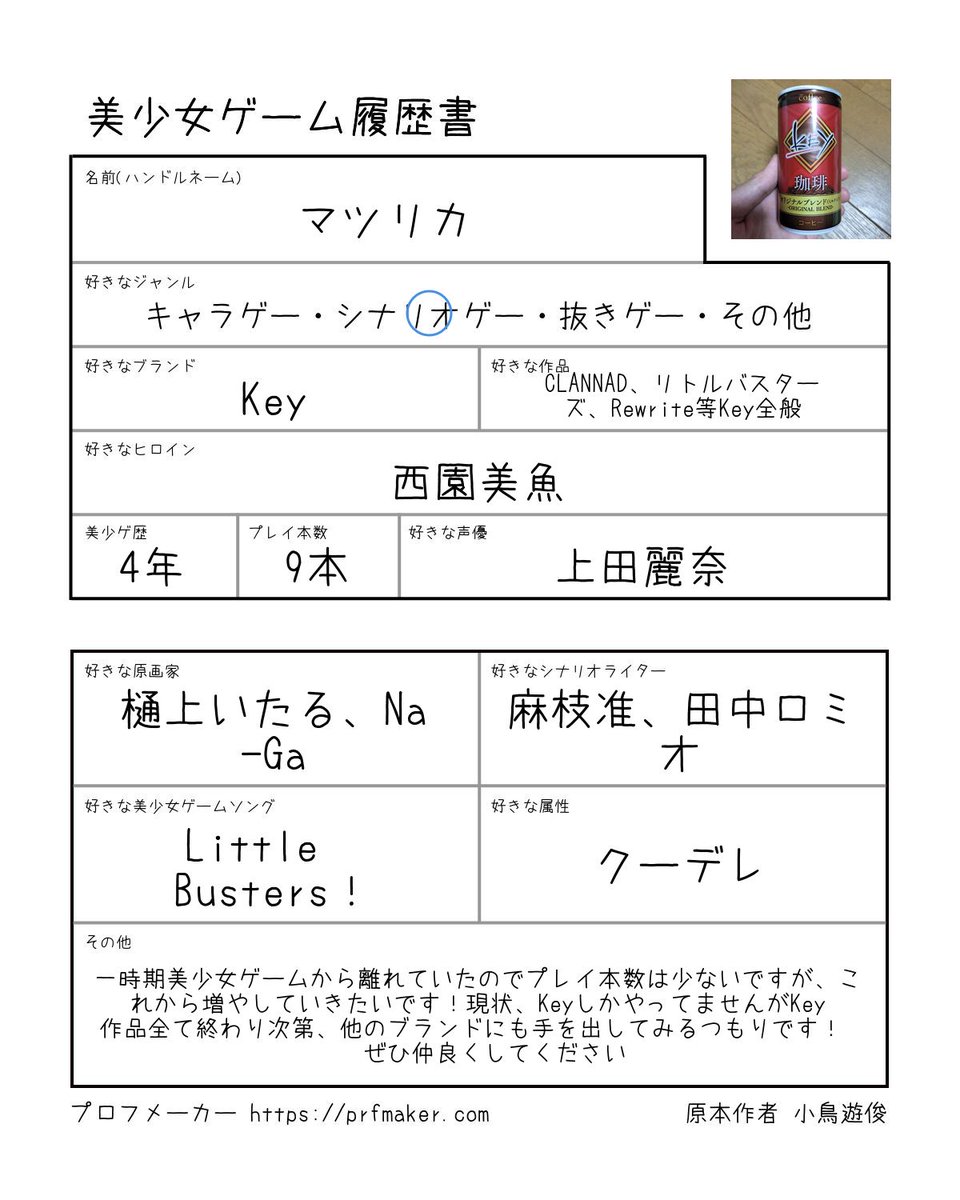 美少女ゲーム履歴書
coffee
Key
珈琲
オリジナルブレンド
-ORIGINAL BLEND-
コーヒー
名前(ハンドルネーム)
マツリカ
好きなジャンル
キャラゲー・シナリオゲー・抜きゲー・その他
好きなブランド
Key
好きな作品
CLANNAD、リトルバスター
ズ、Rewrite等Key全般
好きなヒロイン
西園美魚
美少ゲ歴
4年
プレイ本数
9本
好きな声優
上田麗奈
好きな原画家
樋上いたる、Na
-Ga
好きなシナリオライター
麻枝准、田中ロミ
オ
好きな美少女ゲームソング
Little
Busters！
好きな属性
クーデレ
その他
一時期美少女ゲームから離れていたのでプレイ本数は少ないですが、こ
れから増やしていきたいです！現状、KeyしかやってませんがKey
作品全て終わり次第、他のブランドにも手を出してみるつもりです！
ぜひ仲良くしてください
プロフメーカー https://prfmaker.com
原本作者 小鳥遊俊